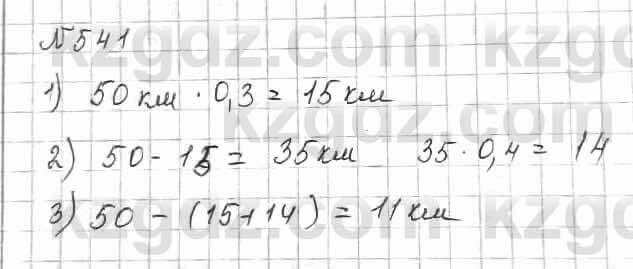 №541
1) 50 км · 0,3 = 15 км
2) 50 - 15 = 35 км 35 · 0,4 = 14
3) 50 - (15+14) = 11 км
kzgdz.com kzgdz
kzgdz.com
kzgdz.com kzgdz